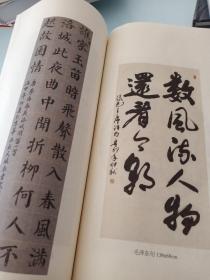 誰家玉笛暗飛聲散入春風滿
洛城此夜曲中聞折柳何人不
起故園情
數風流人物
還看今朝
毛泽东句